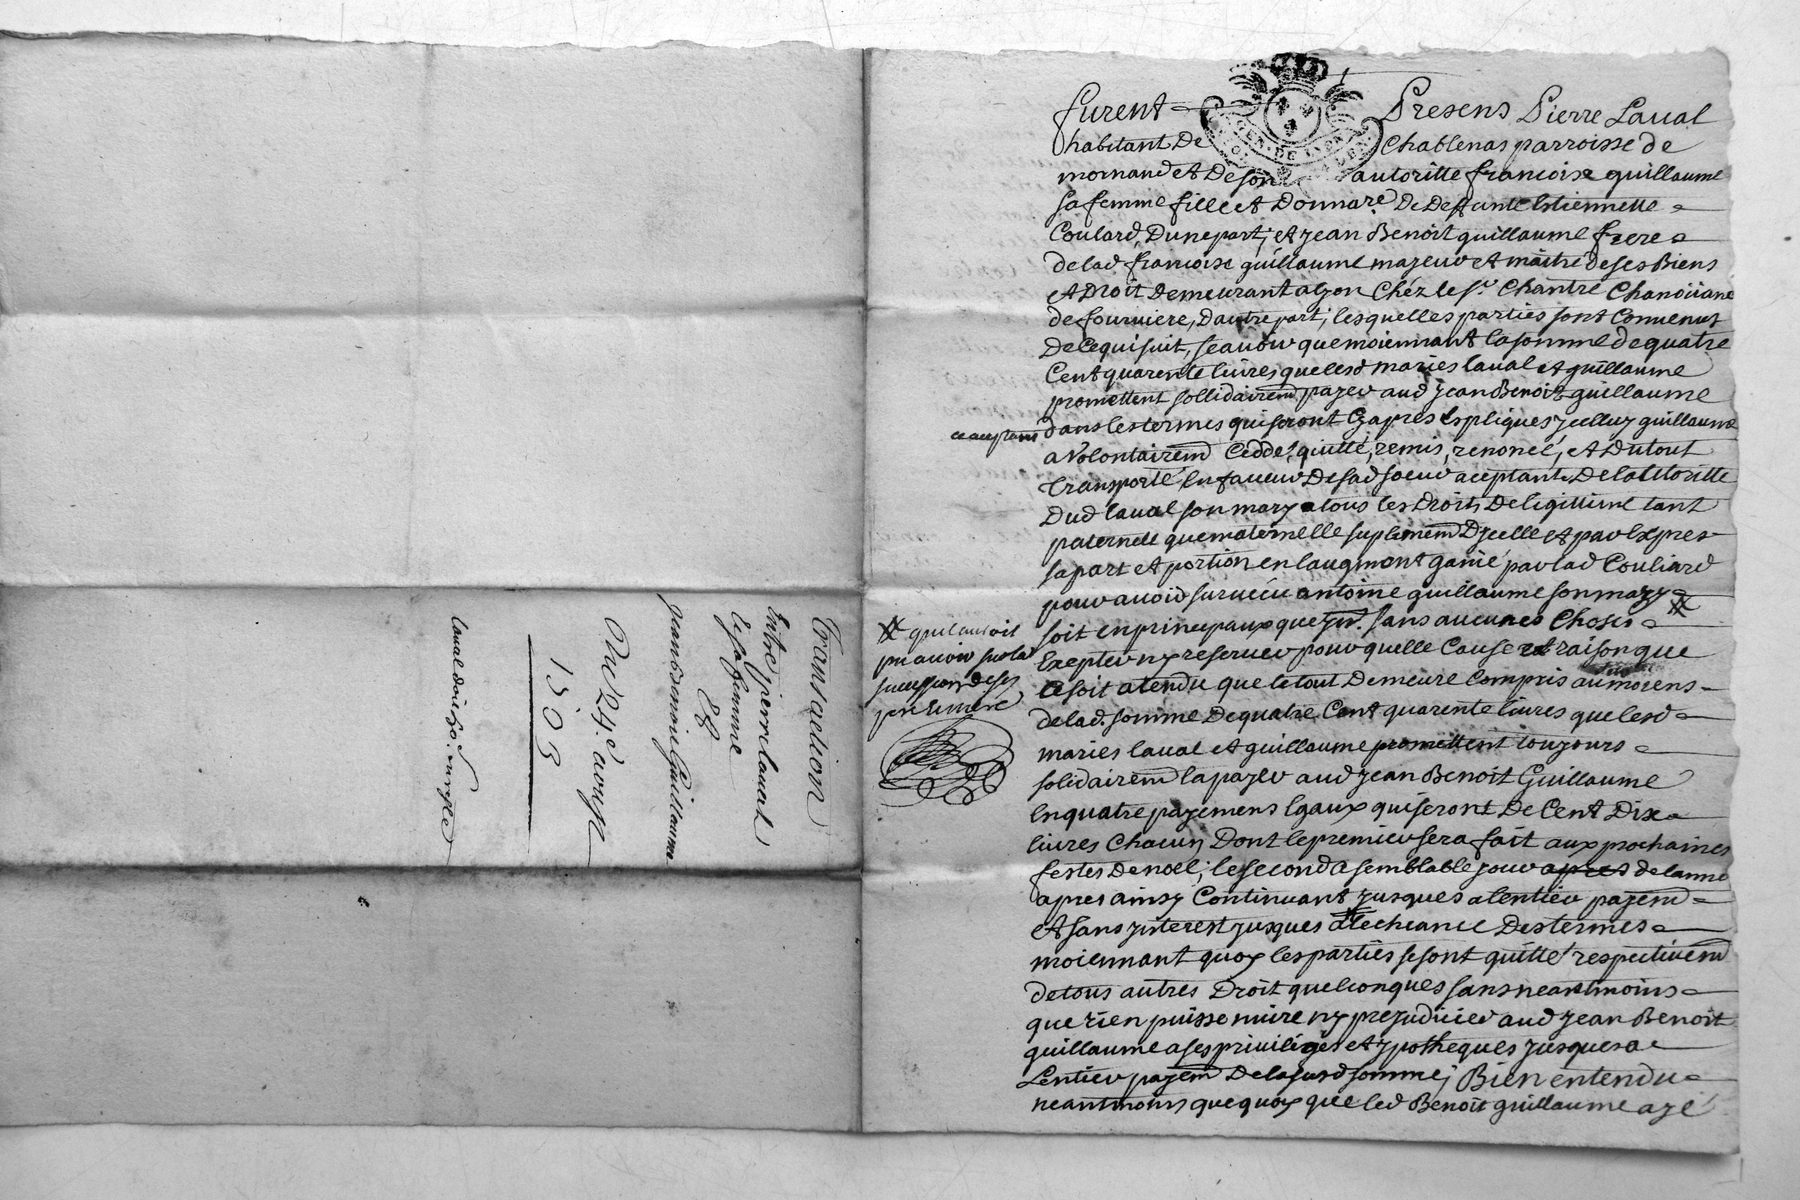 furent Presens Pierre Laual
habitant De Chablenas parroisse de
mornand et De son autoritte francoise guillaume
sa femme fille et Donnare. De Deffunte Estiennette
Coulard, Dune part; et jean Benoit guillaume frere
de lad francoise guillaume majeur et maitre de ses Biens
et Droit Demeurant a Lyon Chéz le Sr. Chantre Chanoiiane
de fouruiere, Dautre part; lesquelles parties sont Conuenus
De Ce qui suit, scauoir que moiennant la somme de quatre
Cent quarente liures que lesd mariés laual et guillaume
promettent sollidairemd payer aud jean Benoit guillaume
dans les termes qui seront Cy apres Expliqués jcelluy guillaume
acceptant
a Volontairemd Ceddé, quitté, remis, renoncé, et Du tout
Transporté En faueur De sad soeur aceptante De lauttoritte
Dud laual son mary a tous les Droits De ligittime tant
paternelle que maternelle suplemem D'jcelle et par Expres
sa part et portion en laugmont gañié par lad Couliard
pour auoir suruécu antoine guillaume son mary
soit en principaux que jnt. sans aucunes Choses
Exepter ny reseruer pour quelle Cause et raison que
Ce soit atendu que le tout Demeure Compris au moiens
de lad. somme De quatre Cent quarente liures que lesd
mariés laual et guillaume promettent toujours
solidairemd la payer aud jean Benoit Guillaume
En quatre payemens Egaux qui seront De Cent Dix
liures Chacun Dont le premier sera fait aux prochaines
festes De noel; le second a semblable jour apres de lanné
apres ainsy Continuant jusques a lentier payemd
et sans jnterest jusques a lecheance Des termes
moiennant quoy les parties se sont quitté respectiuemd
de tous autres Droit quelconques sans neantmoins
que rien puisse nuire ny prejudicier aud jean Benoit
guillaume a ses priuiliges et ypotheques jusques a
Lentier payem De la susd somme; Bien entendu
neantmoins que quoy que led Benoit guillaume aye
qu'il auroit
pu auoir sur la
succession de ses
pere Et mere
Transaction
Entre pierre laual
Et sa femme
Et
jean benoit Guillaume
Du 24e. aoust
1303